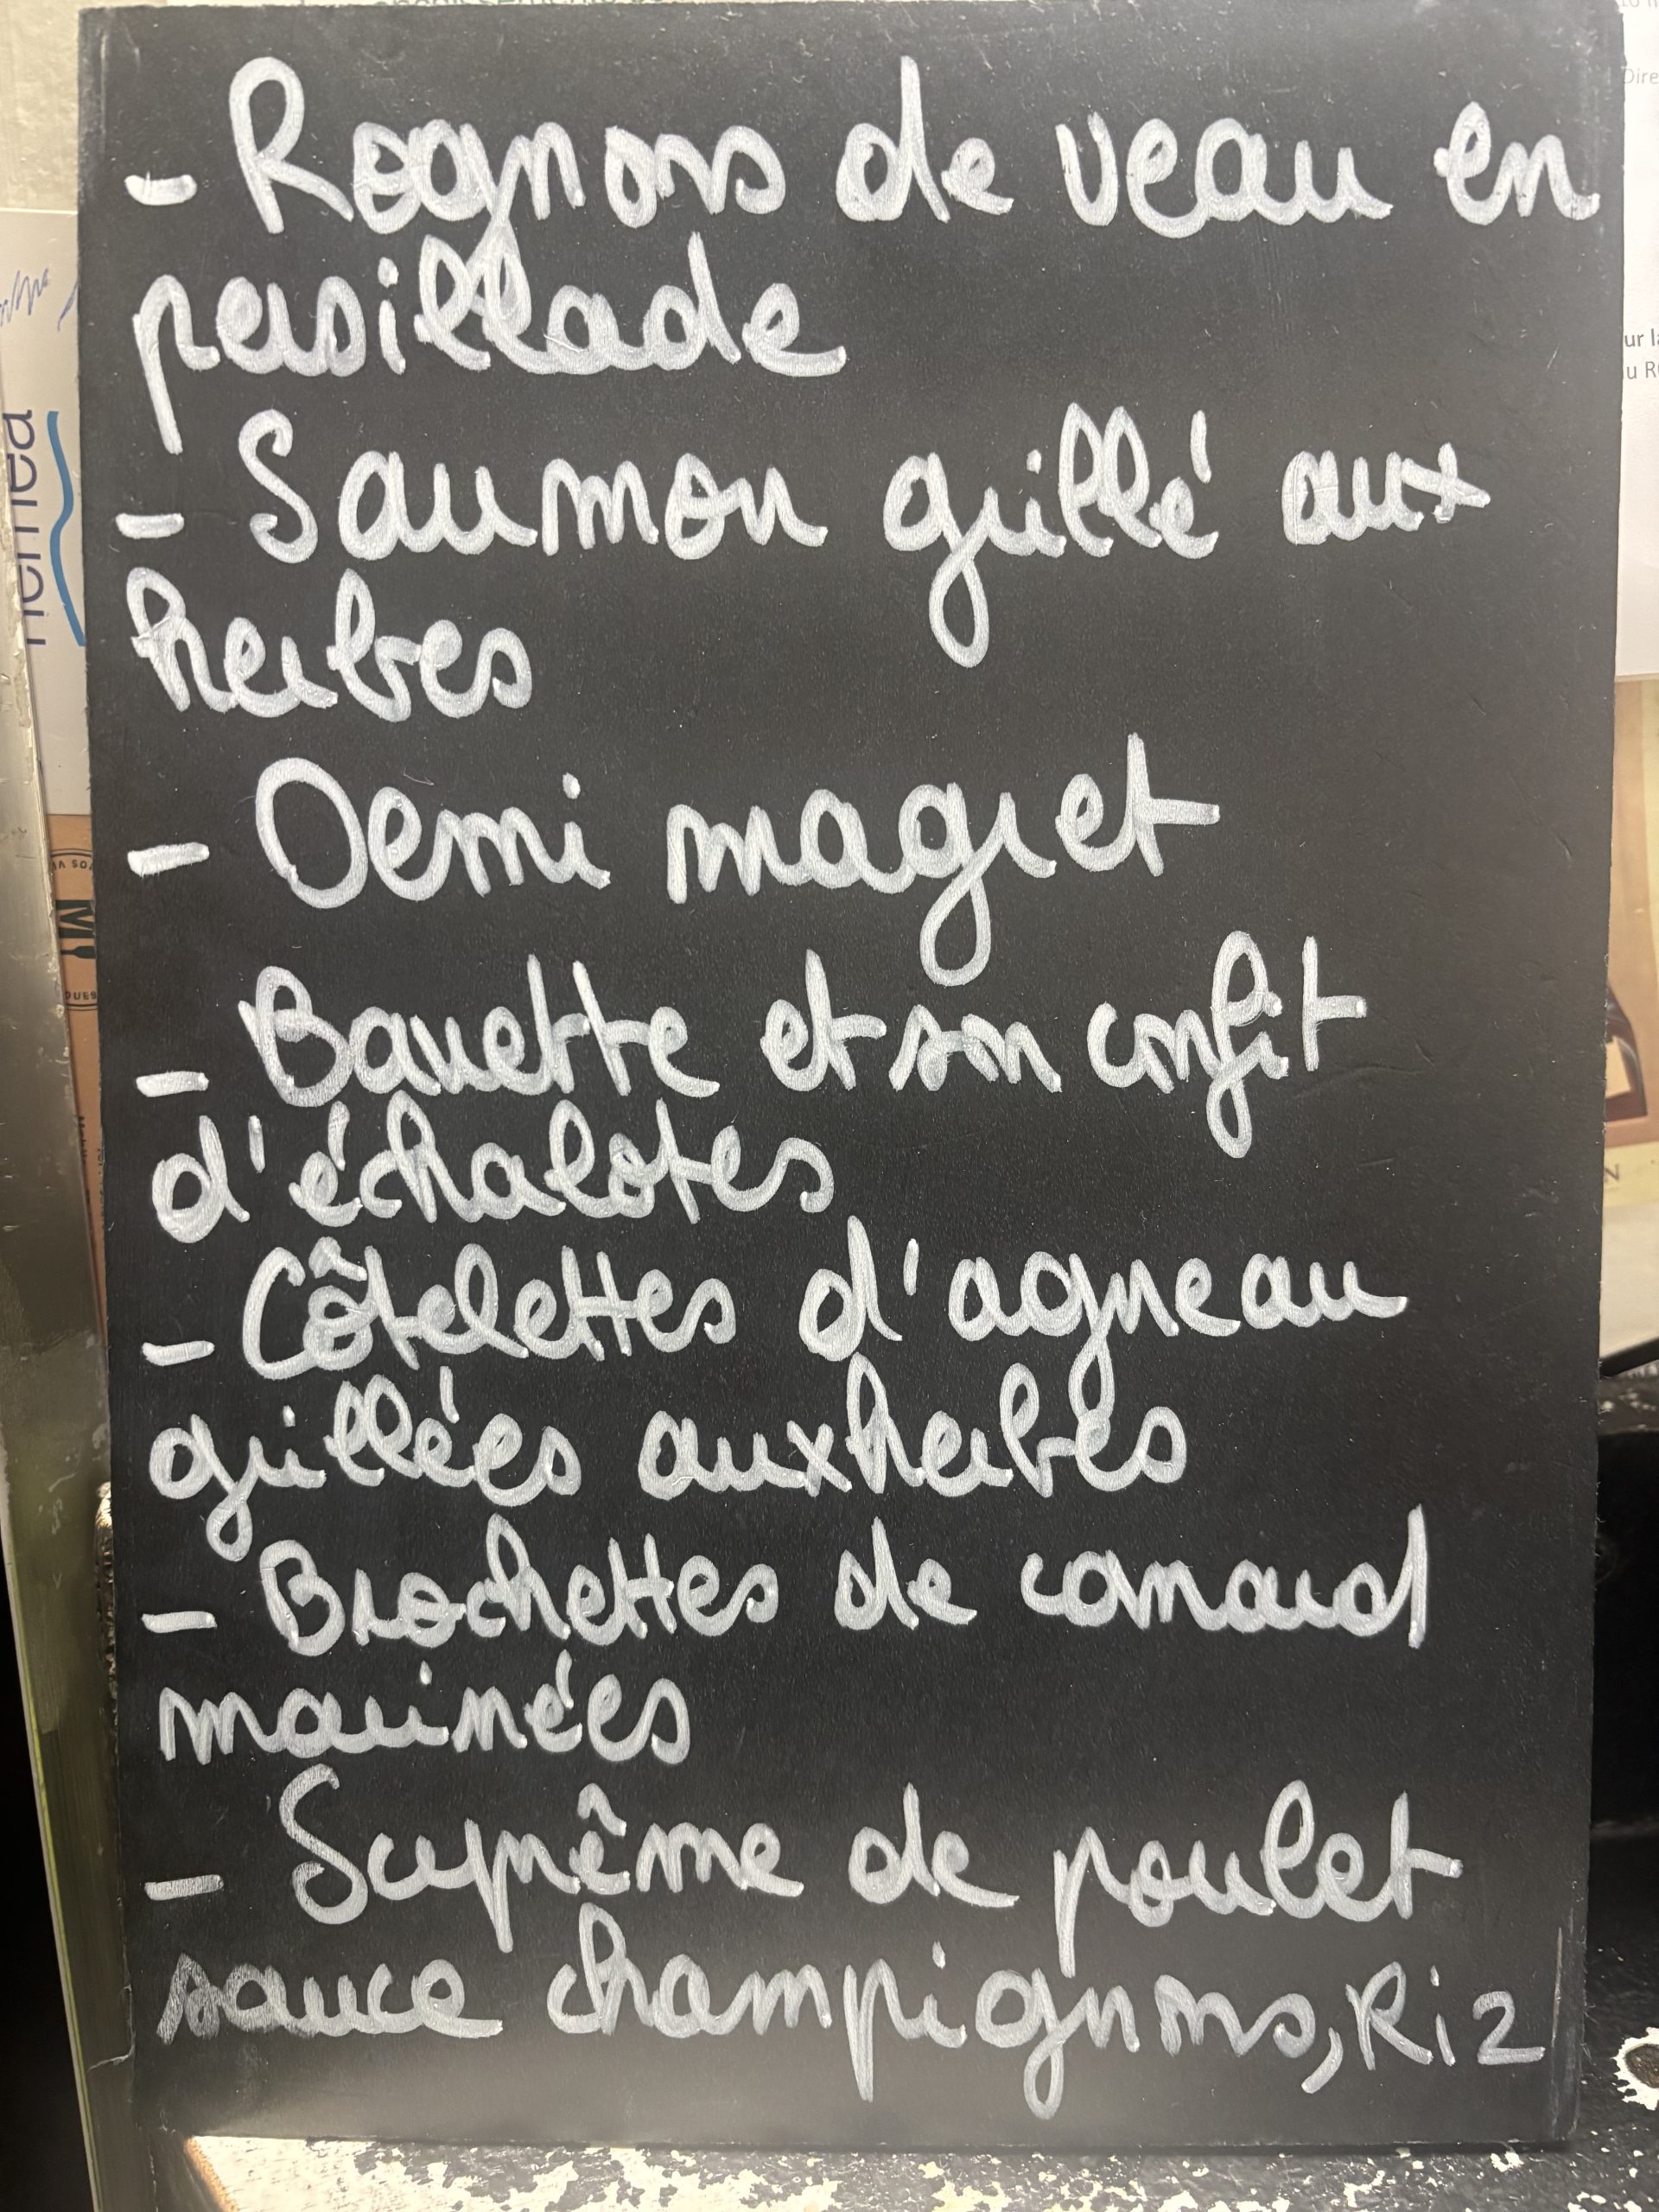 - Rognons de veau en
persillade
- Saumon grillé aux
herbes
- Demi magret
- Bavette et son confit
d'échalotes
- Côtelettes d'agneau
grillées aux herbes
- Brochettes de canard
marinées
- Suprême de poulet
sauce champignons, Riz